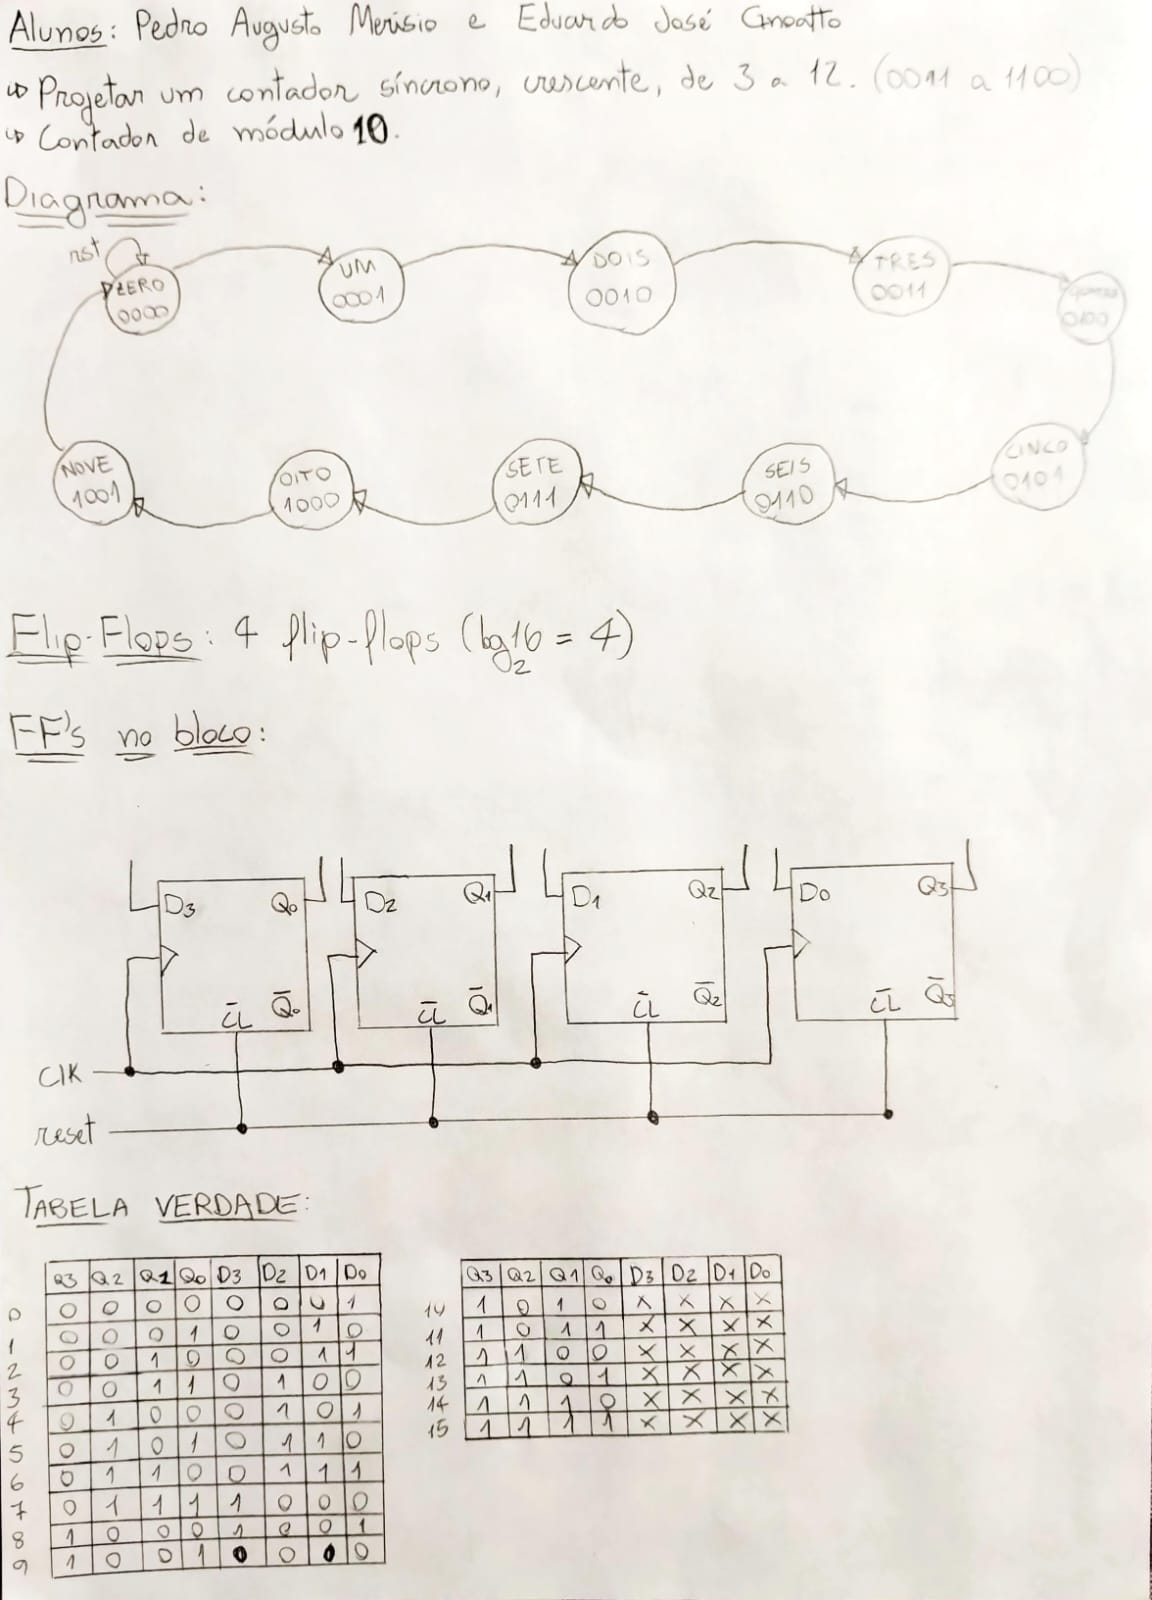 Alunos: Pedro Augusto Merísio e Eduardo José Gnoatto
↳ Projetar um contador síncrono, crescente, de 3 a 12. (0011 a 1100)
↳ Contador de módulo 10.
Diagrama:
rst
ZERO 0000
UM 0001
DOIS 0010
TRES 0011
QUATRO 0100
NOVE 1001
OITO 1000
SETE 0111
SEIS 0110
CINCO 0101
Flip-Flops: 4 flip-flops (log₂16 = 4)
FF's no bloco:
D3 Q0 D2 Q1 D1 Q2 D0 Q3
C̅L̅ Q̅0 C̅L̅ Q̅1 C̅L̅ Q̅2 C̅L̅ Q̅3
Clk
reset
TABELA VERDADE:
Q3 Q2 Q1 Q0 D3 D2 D1 D0
0 0 0 0 0 0 0 0 1
1 0 0 0 1 0 0 1 0
2 0 0 1 0 0 0 1 1
3 0 0 1 1 0 1 0 0
4 0 1 0 0 0 1 0 1
5 0 1 0 1 0 1 1 0
6 0 1 1 0 0 1 1 1
7 0 1 1 1 1 0 0 0
8 1 0 0 0 1 0 0 1
9 1 0 0 1 0 0 0 0
Q3 Q2 Q1 Q0 D3 D2 D1 D0
10 1 0 1 0 X X X X
11 1 0 1 1 X X X X
12 1 1 0 0 X X X X
13 1 1 0 1 X X X X
14 1 1 1 0 X X X X
15 1 1 1 1 X X X X